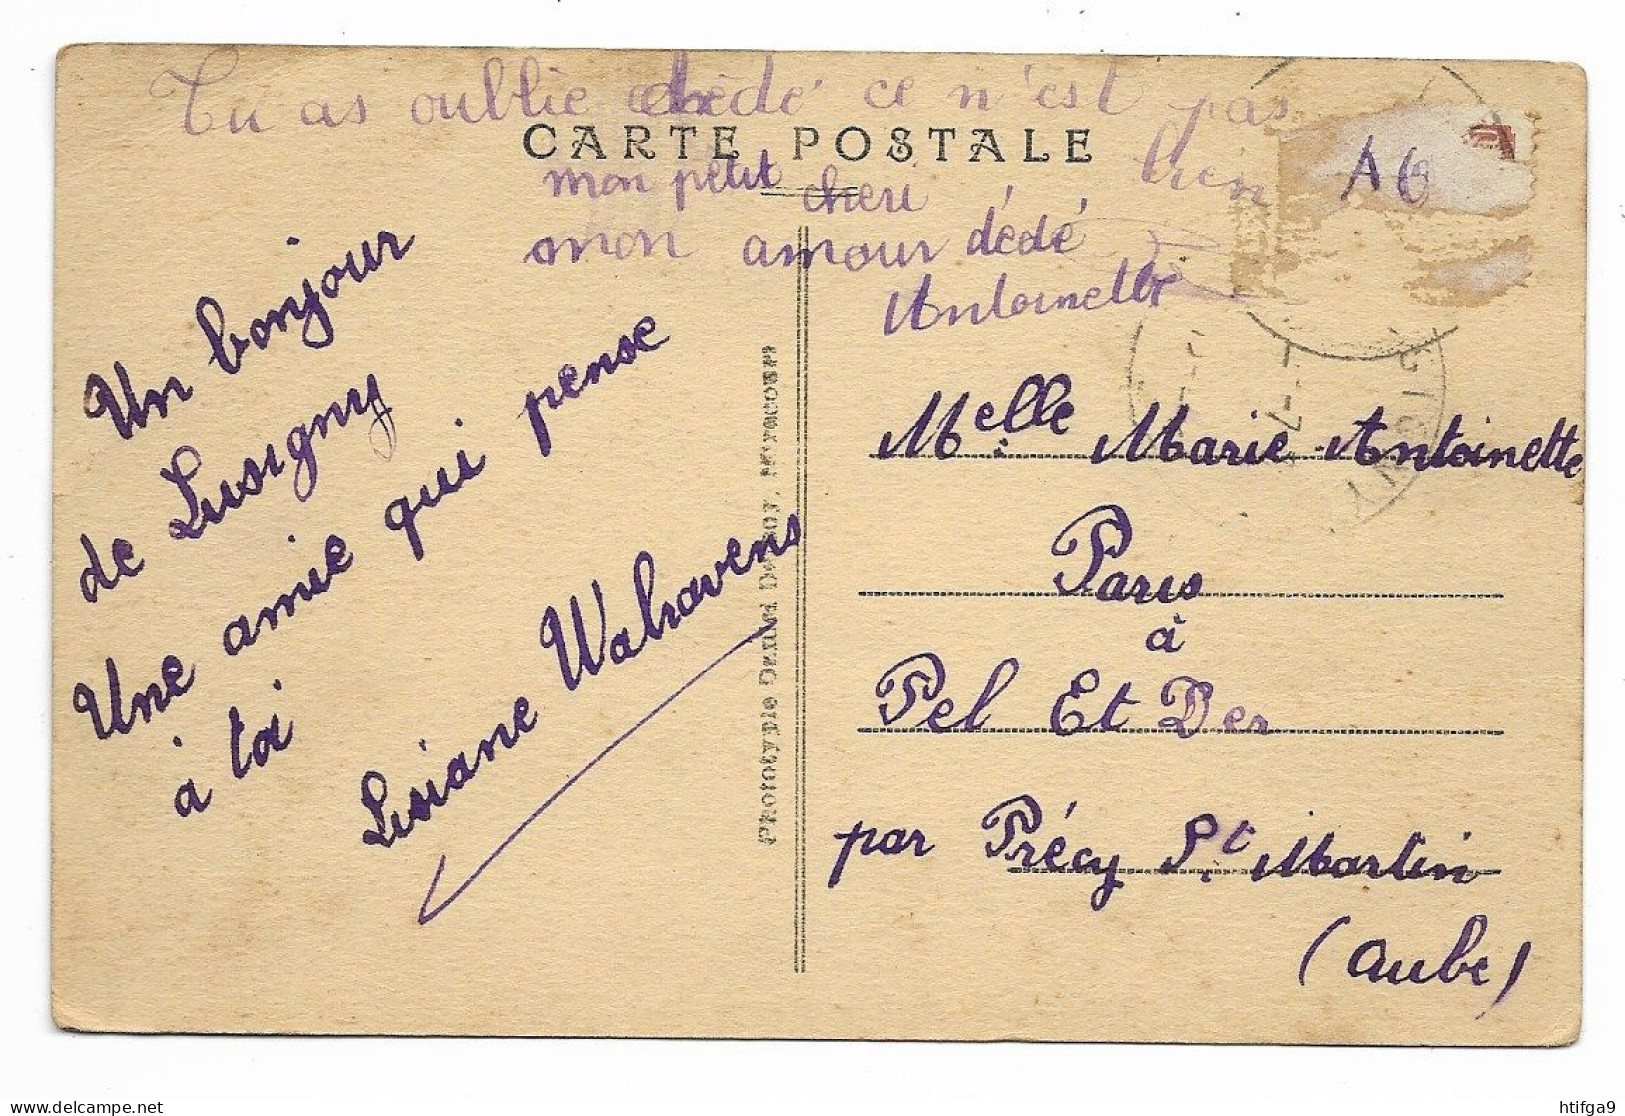 Tu as oublié dédé ce n'est pas
bien
CARTE POSTALE
mon petit cheri
mon amour dédé
Antoinette
A6
Un bonjour
de Lusigny
Une amie qui pense
à toi
Lusiane Walravens
Melle Marie-Antoinette
Paris
à
Pel Et Der
par Précy St. Martin
(Aube)
htifga9